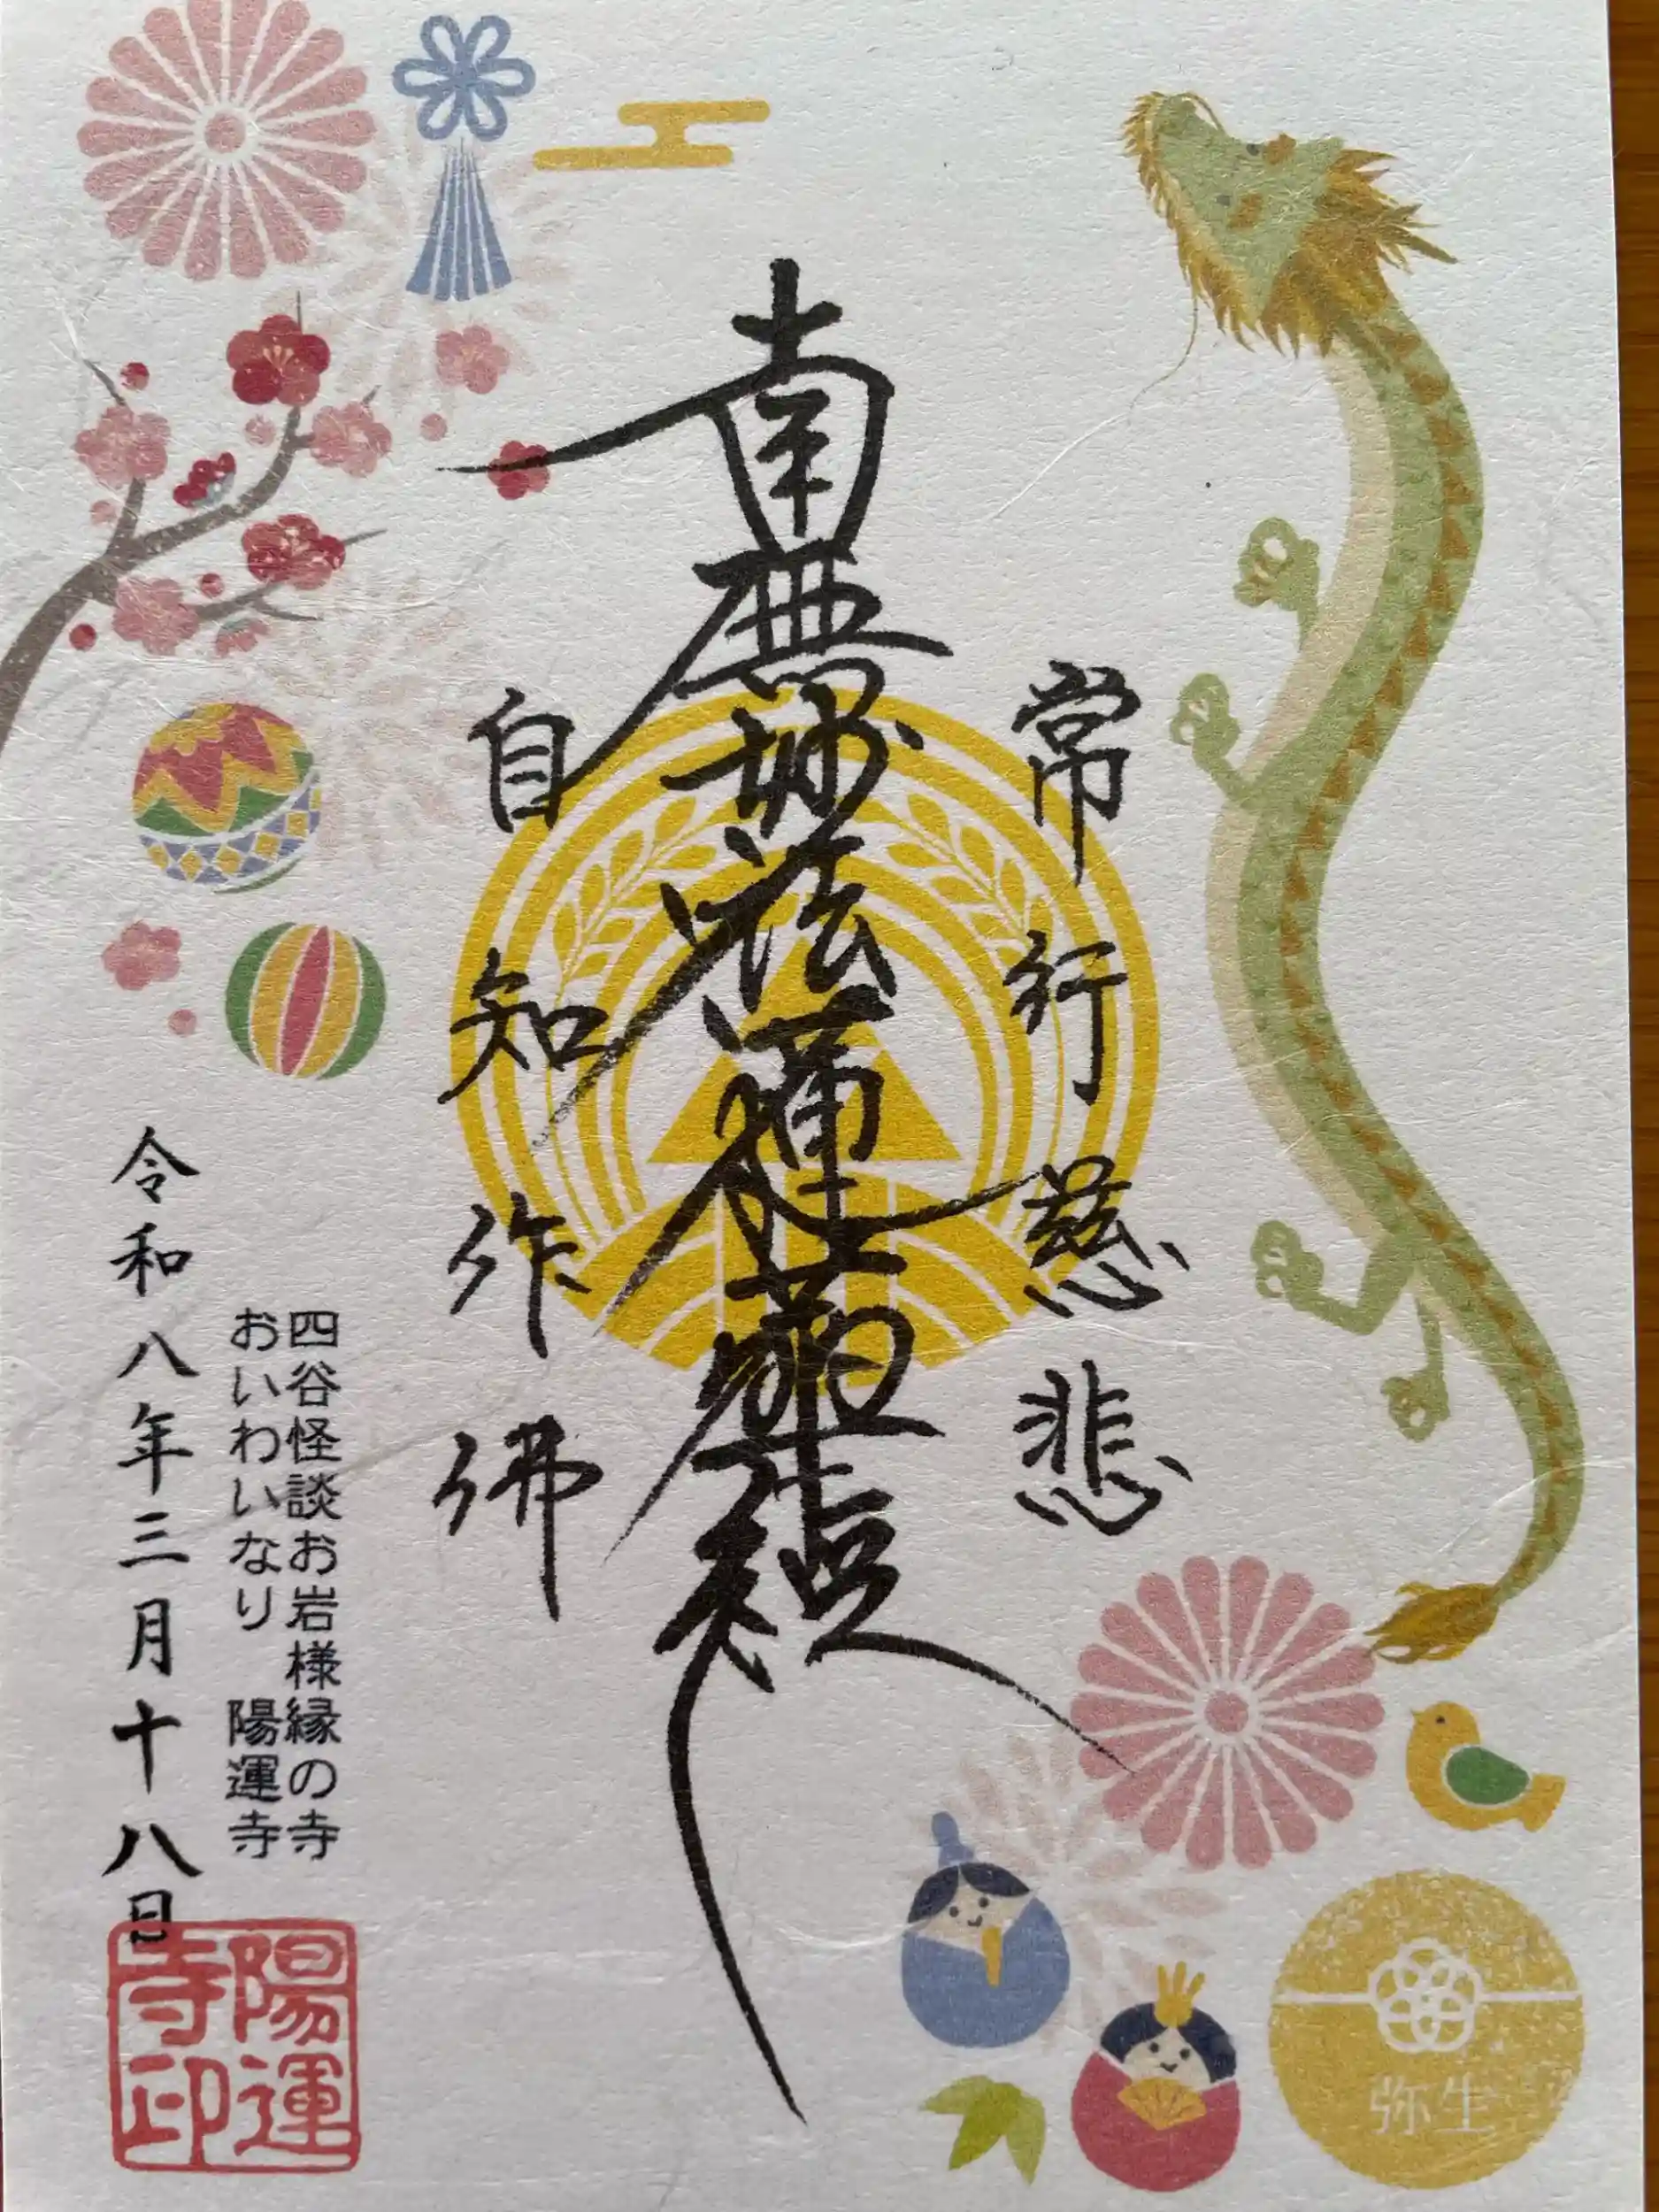 常行慈悲
南無妙法蓮華経
自知作佛
四谷怪談お岩様縁の寺
おいわいなり 陽運寺
令和八年三月十八日
陽運
寺印
弥生